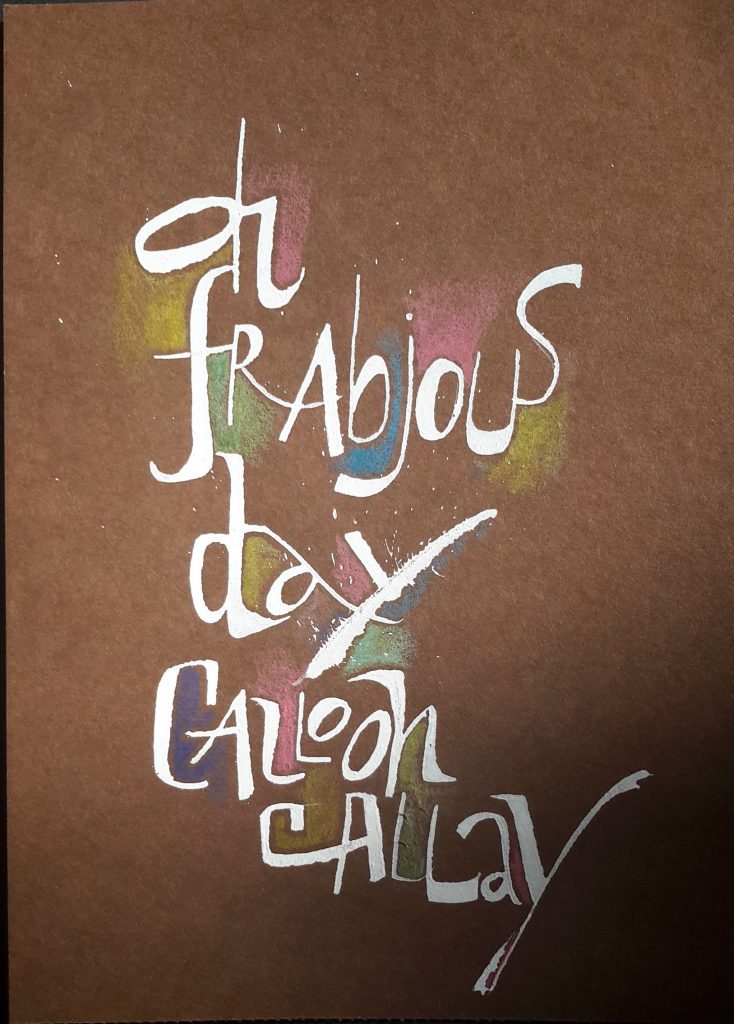 oh
fRAbjous
day
CALLOOh
CALLAY